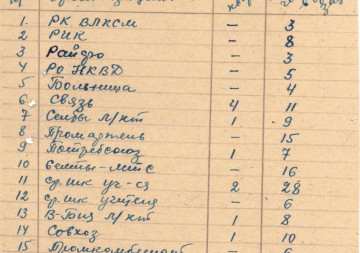 1. РК ВЛКСМ — 3
2 РИК — 8
3 Райфо — 3
4 РО НКВД — 5
5 Больница — 4
6. Связь 4 11
7 Сельы л/кт 1 9
8 Промартель — 15
9 Потребсоюз 1 7
10 — 16
11 ср. шк уч-ся 2 28
12 ср. шк учителя — 6
13 л/кт 1 8
14 Совхоз 1 10
15 Промкомбинат — 6